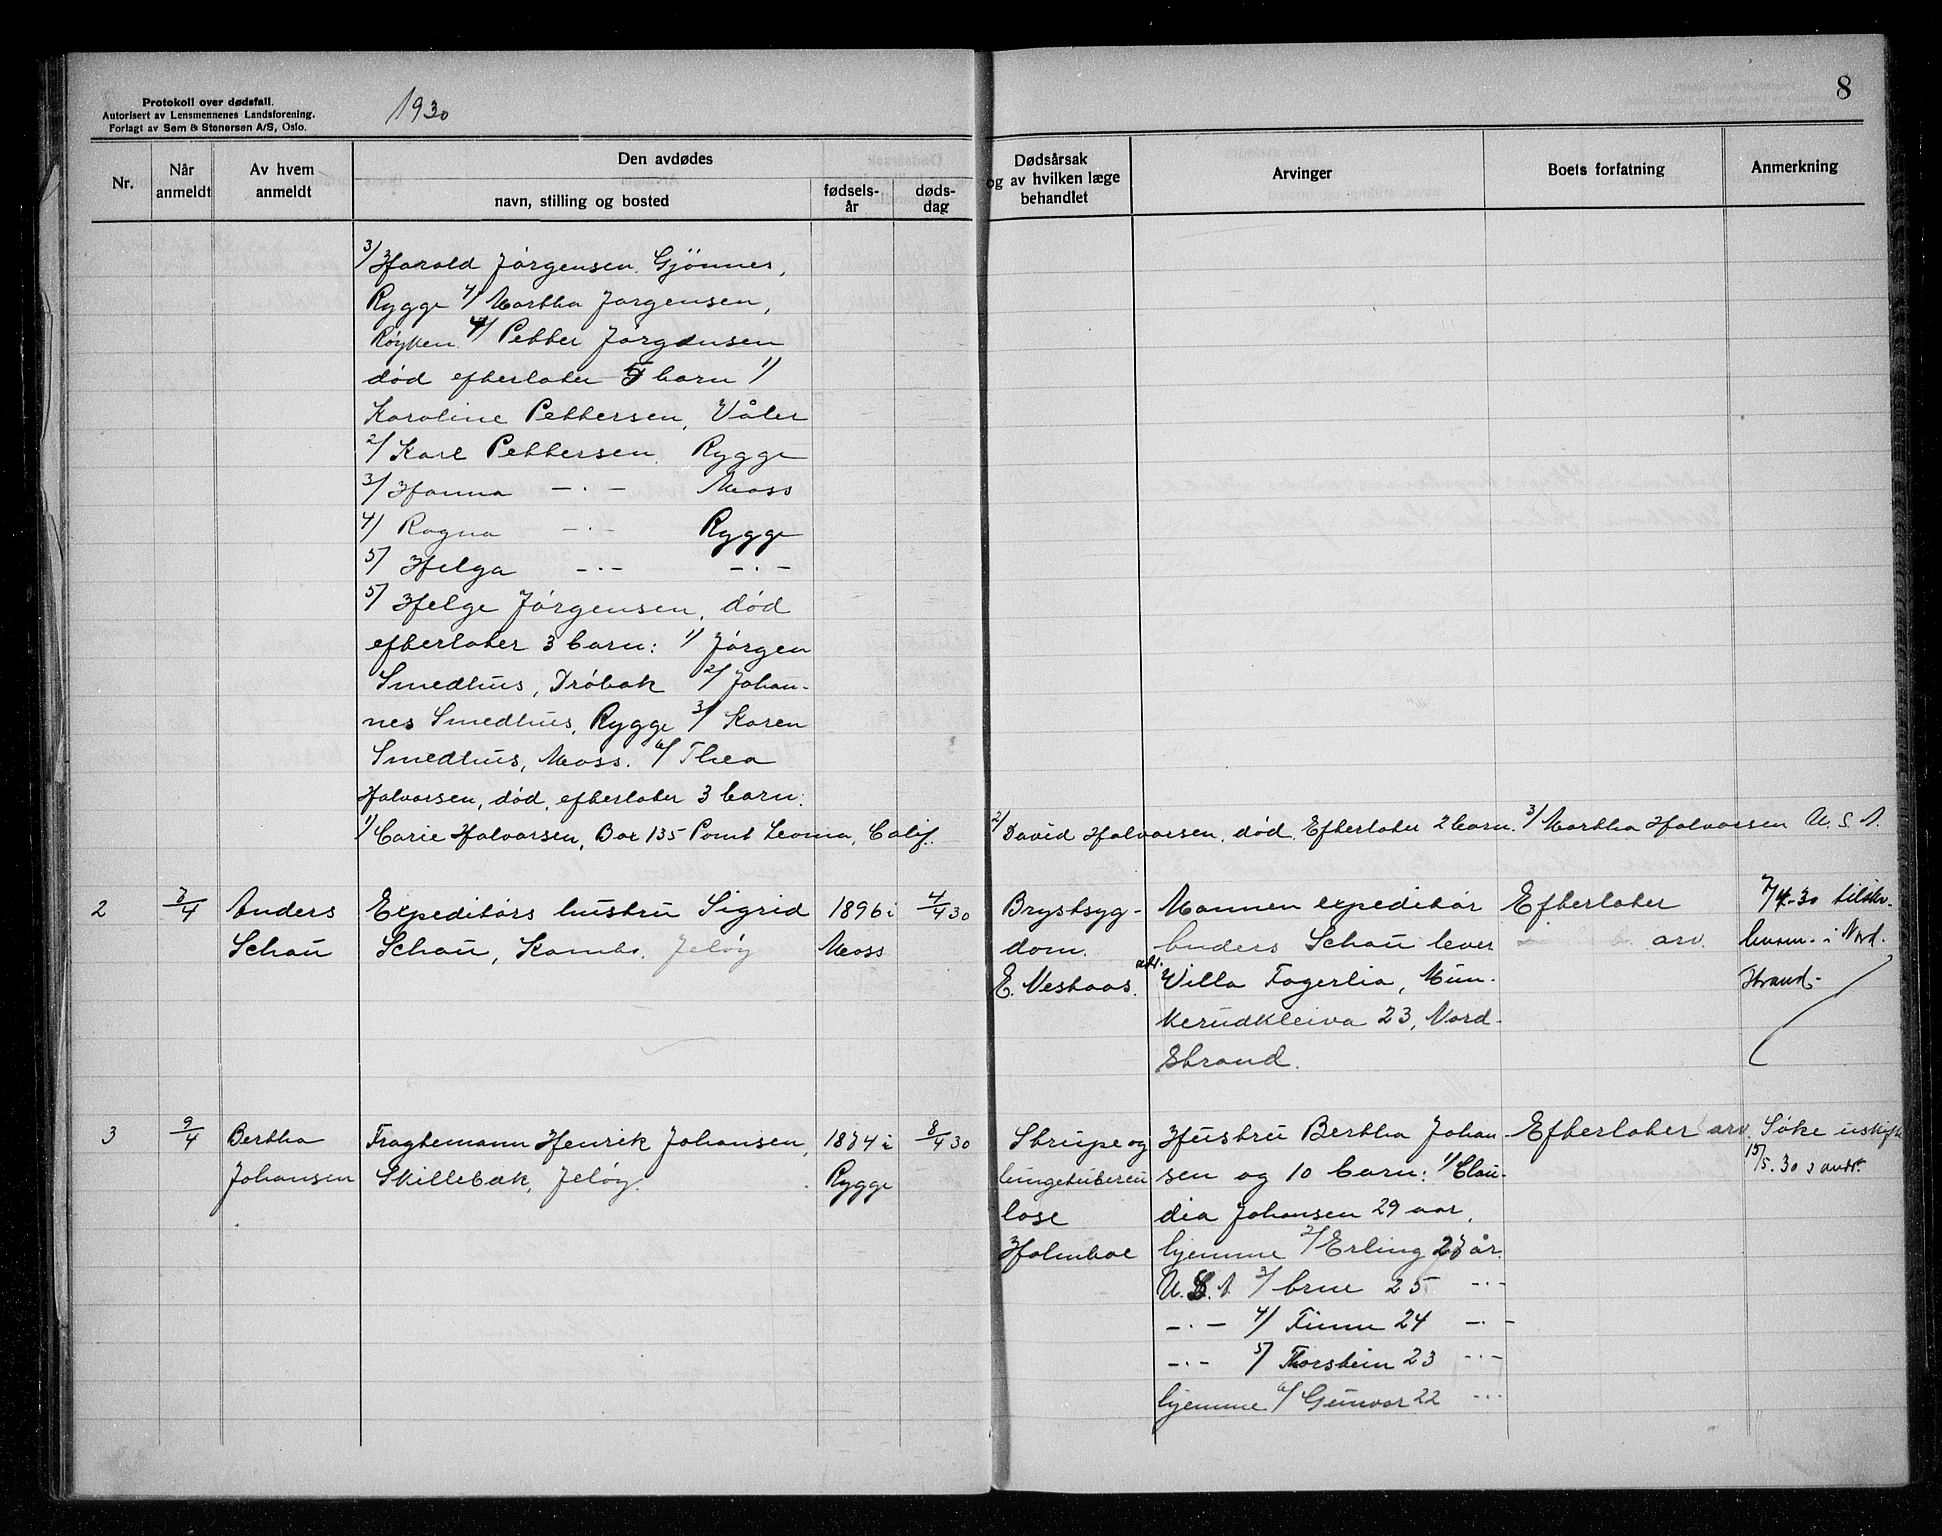 Protokoll over dødsfall.
Autorisert av Lensmennenes Landsforening.
Forlagt av Sem & Stenersen A/S, Oslo.
1930
8
Nr.
Når anmeldt
Av hvem anmeldt
Den avdødes
navn, stilling og bosted
fødsels-år
døds-dag
Dødsårsak og av hvilken læge behandlet
Arvinger
Boets forfatning
Anmerkning
3/ Harald Jørgensen, Gjønnes,
Rygge 4/ Martha Jørgensen,
Røyken. 4/ Petter Jørgensen
død efterlater 5 barn 1/
Karoline Pettersen, Våler
2/ Karl Pettersen, Rygge
3/ Hanna -"- Moss
4/ Ragna -"- Rygge
5/ Helga -"- -"-
5/ Helge Jørgensen, død
efterlater 3 barn: 1/ Jørgen
Smedhus, Drøbak 2/ Johan-
nes Smedhus, Rygge 3/ Karen
Smedhus, Moss. 6/ Thea
Halvorsen, død, efterlater 3 barn:
1/ Carie Halvorsen, Box 135 Point Leoma, Calif. 2/ David Halvorsen, død. Efterlater 2 barn. 3/ Martha Halvorsen U.S.A.
2
7/4
Anders
Schau
Expeditørs hustru Sigrid
Schau, Kambo, Jeløy
1896 i
Moss
4/4 30
Brystsyg-
dom.
E. Nesbaas.
Mannen expeditør
Anders Schau lever
adr. Villa Fagerlia, Mun-
kerudkleiva 23, Nord-
strand.
Efterlater
arv.
7/4-30 tilskr.
lensm. i Nord.
strand.
3
9/4
Bertha
Johansen
Fragtemann Henrik Johansen,
Skillebæk, Jeløy.
1874 i
Rygge
8/4 30
Strupe og
lungetubercu
lose
Holmboe
Hustru Bertha Johan
sen og 10 barn: 1/ Clau-
dia Johansen 29 aar,
hjemme 2/ Erling 27 år.
U.S.A. 3/ Arne 25 -"-
-"- 4/ Finn 24 -"-
-"- 5/ Thorstein 23 -"-
hjemme 6/ Gunvor 22 -"-
Efterlater arv.
Søke uskifte
15/5.30 s